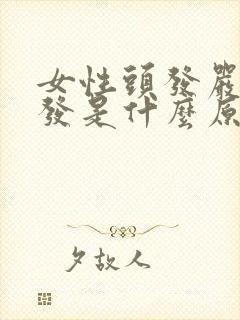 女性頭發嚴
發是什麼原
夕故人